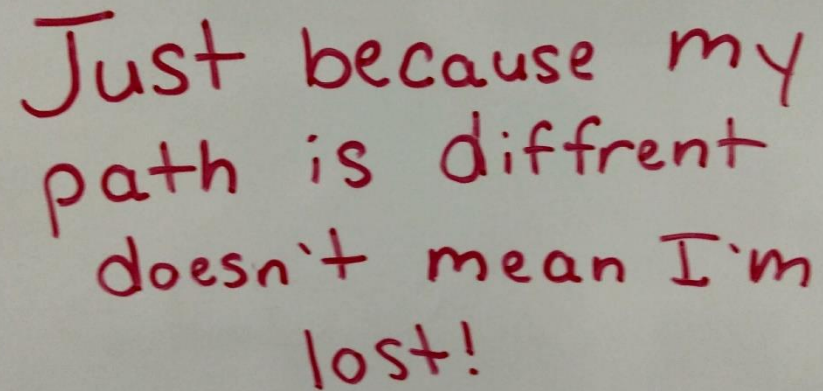 Just because my
path is diffrent
doesn't mean I'm
lost!